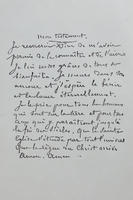 Mon testament.
Je remercie Dieu de m'avoir
permis de le connaître et de l'aimer
Je lui rends grâces de tous ses
bienfaits. Je meurs dans son
amour et j'espère le bénir
et le louer éternellement.
Je le prie pour les hommes
qui sont sur la terre et pour tous
ceux qui y paraîtront jusqu'à
la fin des siècles, que la Sainte
Eglise s'étende par tout et
que le règne du Christ arrive
Amen. Amen